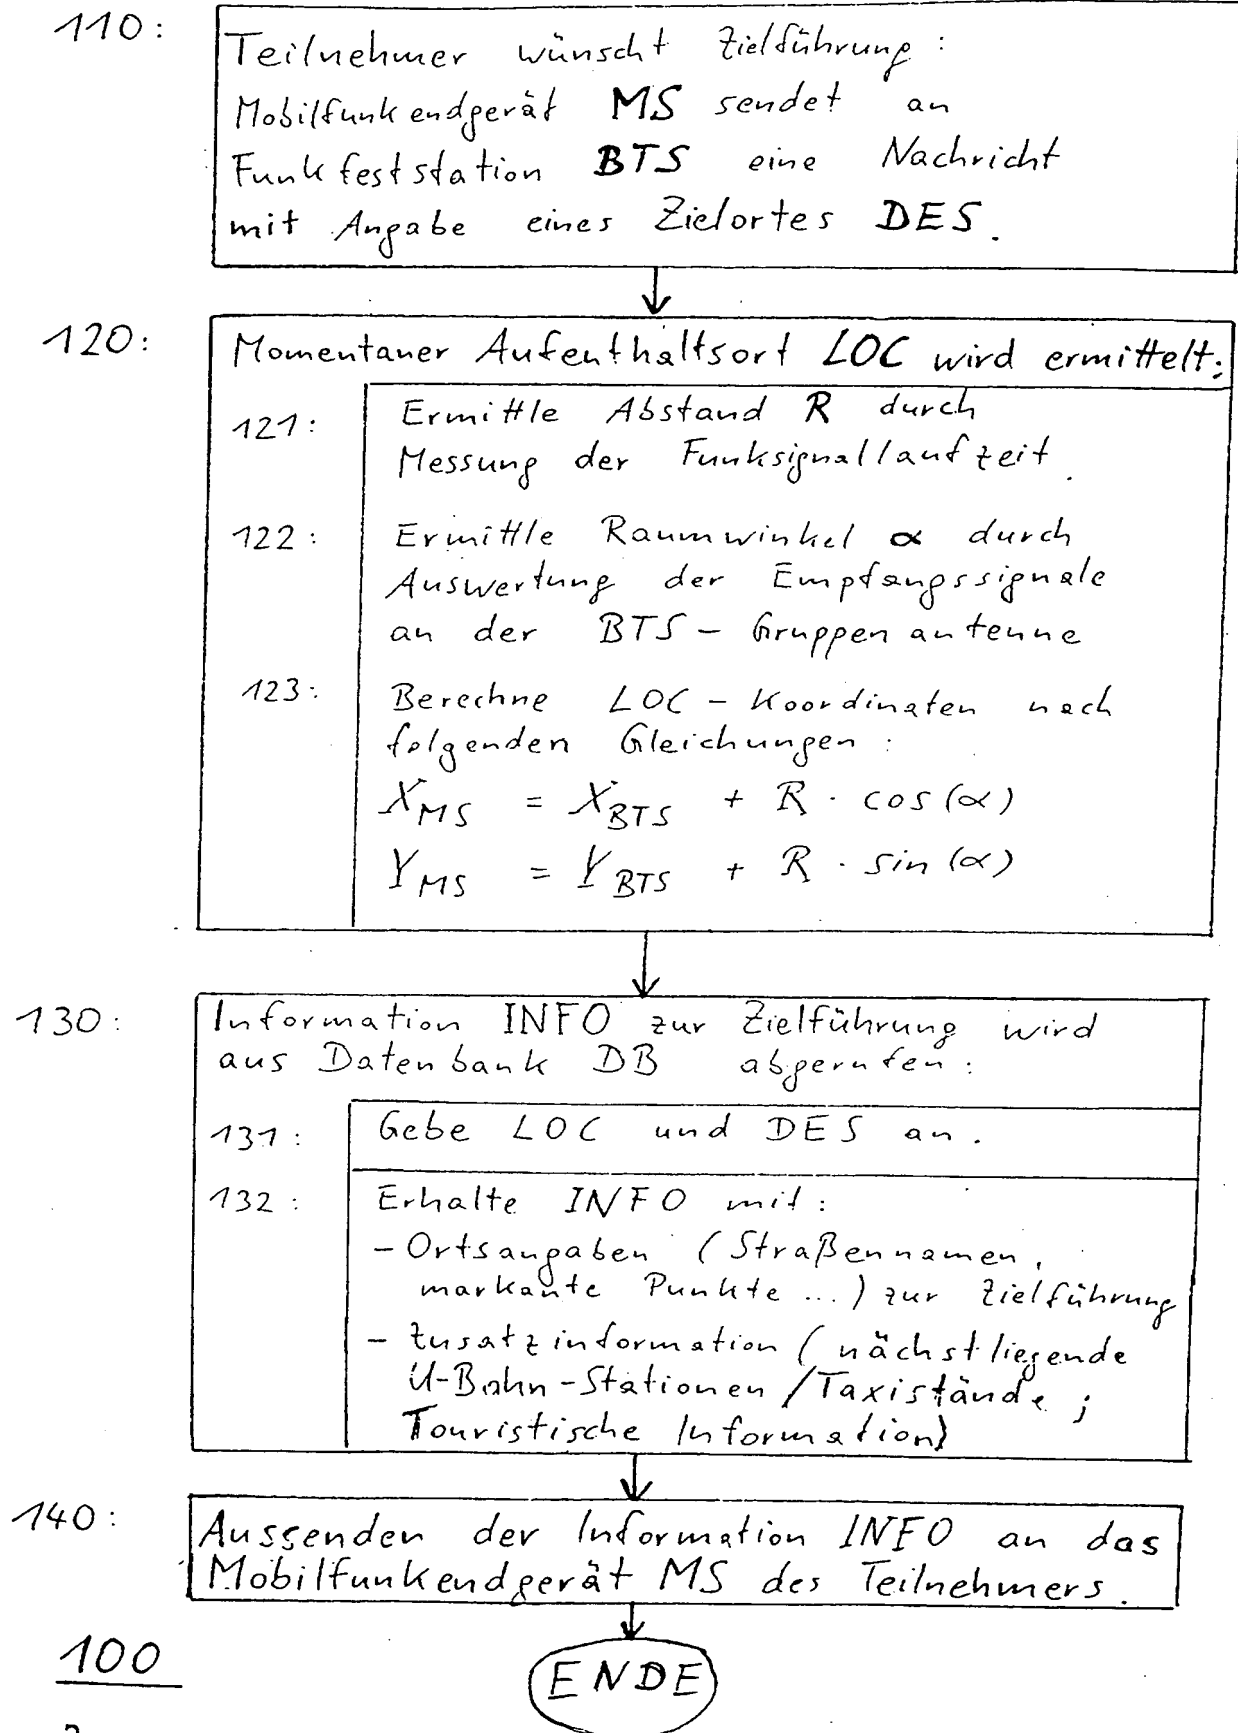 110:
Teilnehmer wünscht Zielführung:
Mobilfunkendgerät MS sendet an
Funkfeststation BTS eine Nachricht
mit Angabe eines Zielortes DES.
120:
Momentaner Aufenthaltsort LOC wird ermittelt:
121:
Ermittle Abstand R durch
Messung der Funksignallaufzeit.
122:
Ermittle Raumwinkel α durch
Auswertung der Empfangssignale
an der BTS-Gruppenantenne
123:
Berechne LOC-Koordinaten nach
folgenden Gleichungen:
X_MS = X_BTS + R · cos(α)
Y_MS = Y_BTS + R · sin(α)
130:
Information INFO zur Zielführung wird
aus Datenbank DB abgerufen:
131:
Gebe LOC und DES an.
132:
Erhalte INFO mit:
- Ortsangaben (Straßennamen,
markante Punkte ...) zur Zielführung
- Zusatzinformation (nächstliegende
U-Bahn-Stationen/Taxistände;
Touristische Information)
140:
Aussenden der Information INFO an das
Mobilfunkendgerät MS des Teilnehmers.
100
ENDE